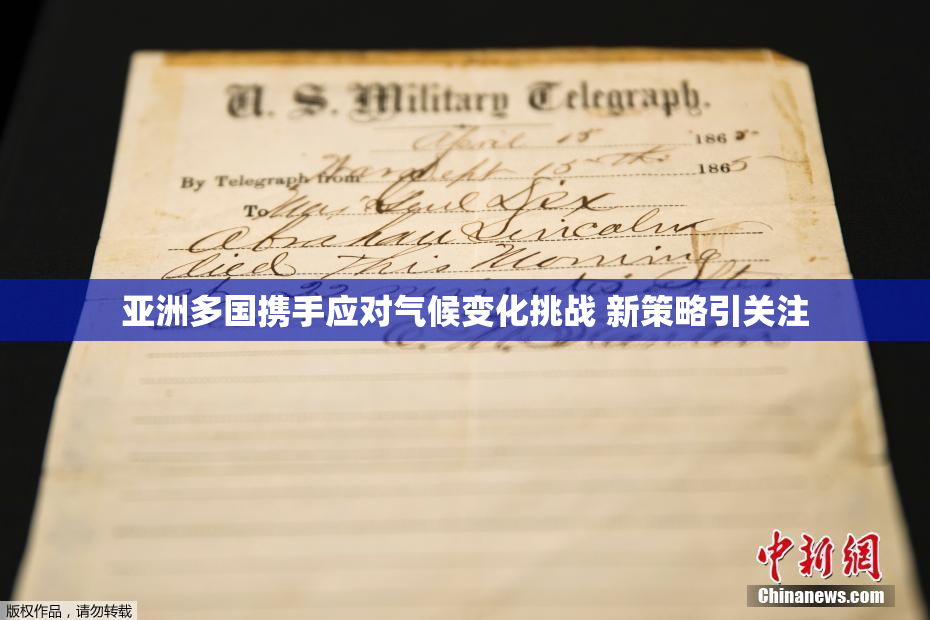 U. S. Military Telegraph.
April 15 1865
By Telegraph from War Dept 15th 1865
To Maj Genl Dix
Abraham Lincoln
died This Morning
at 22 minutes after
亚洲多国携手应对气候变化挑战 新策略引关注
E. M. Stanton
中新網
Chinanews.com
版权作品，请勿转载